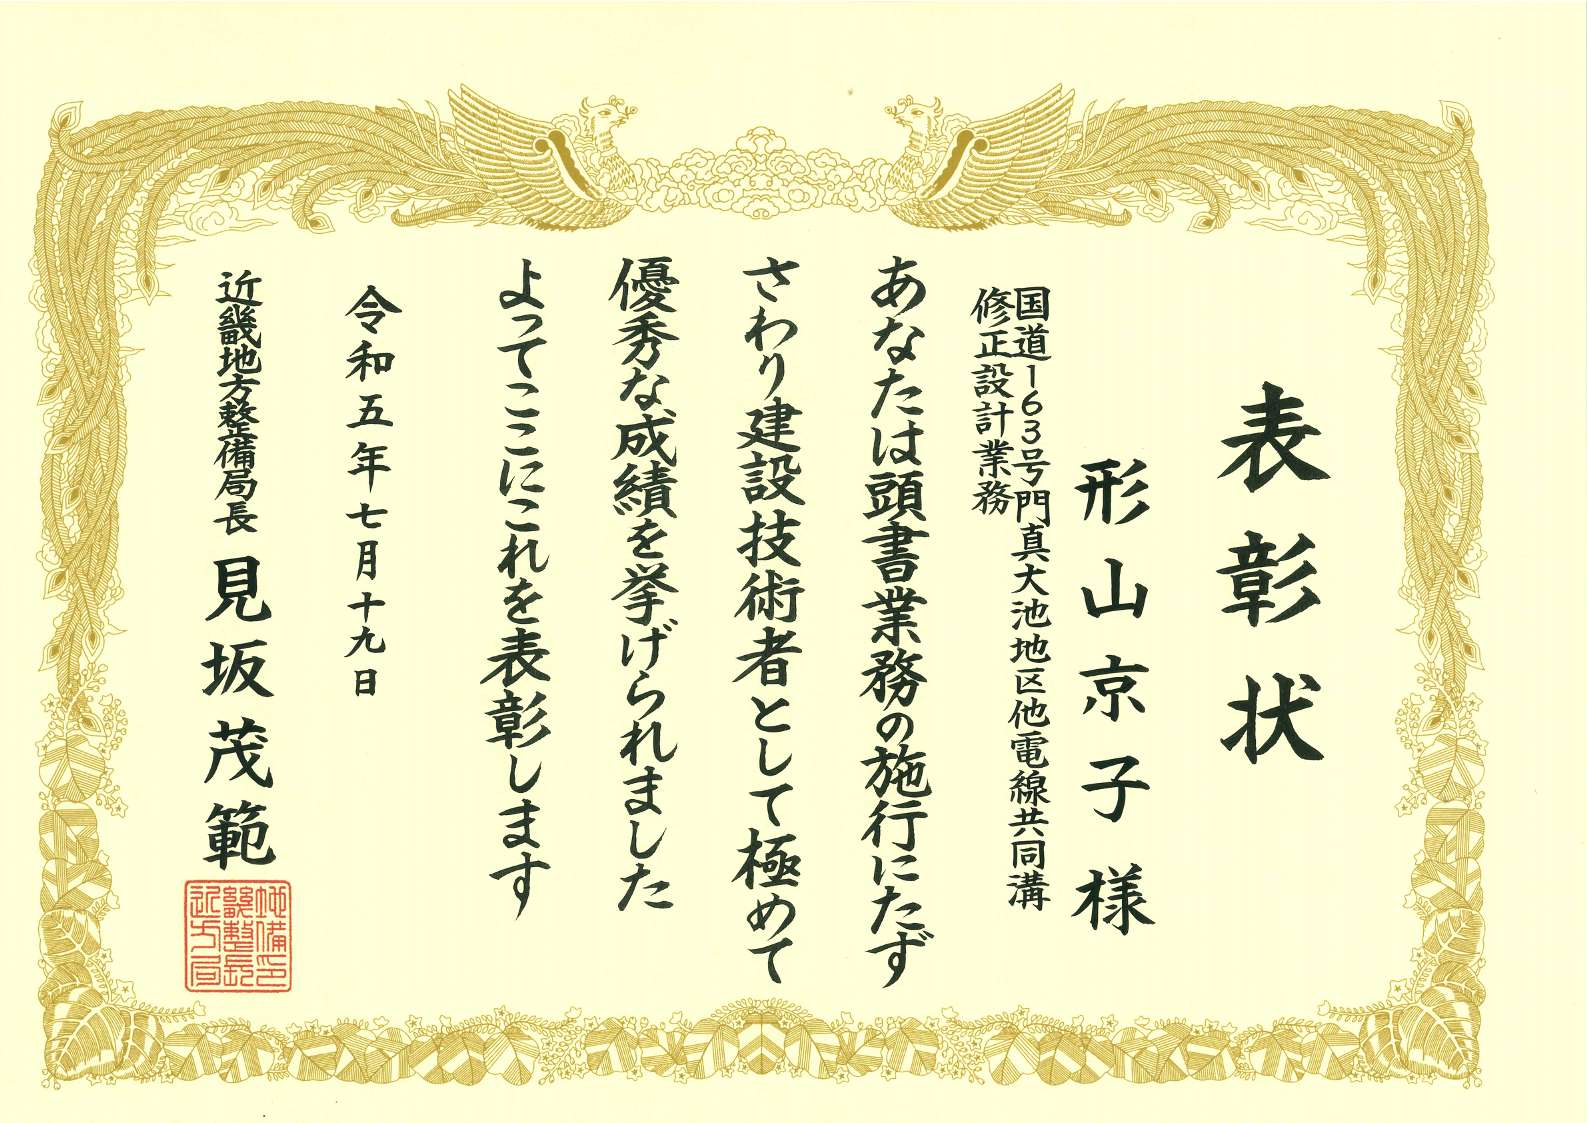 表彰状
形山京子様
国道163号門真大池地区他電線共同溝
修正設計業務
あなたは頭書業務の施行にたず
さわり建設技術者として極めて
優秀な成績を挙げられました
よってここにこれを表彰します
令和五年七月十九日
近畿地方整備局長 見坂茂範
近畿地
方整備
局長印